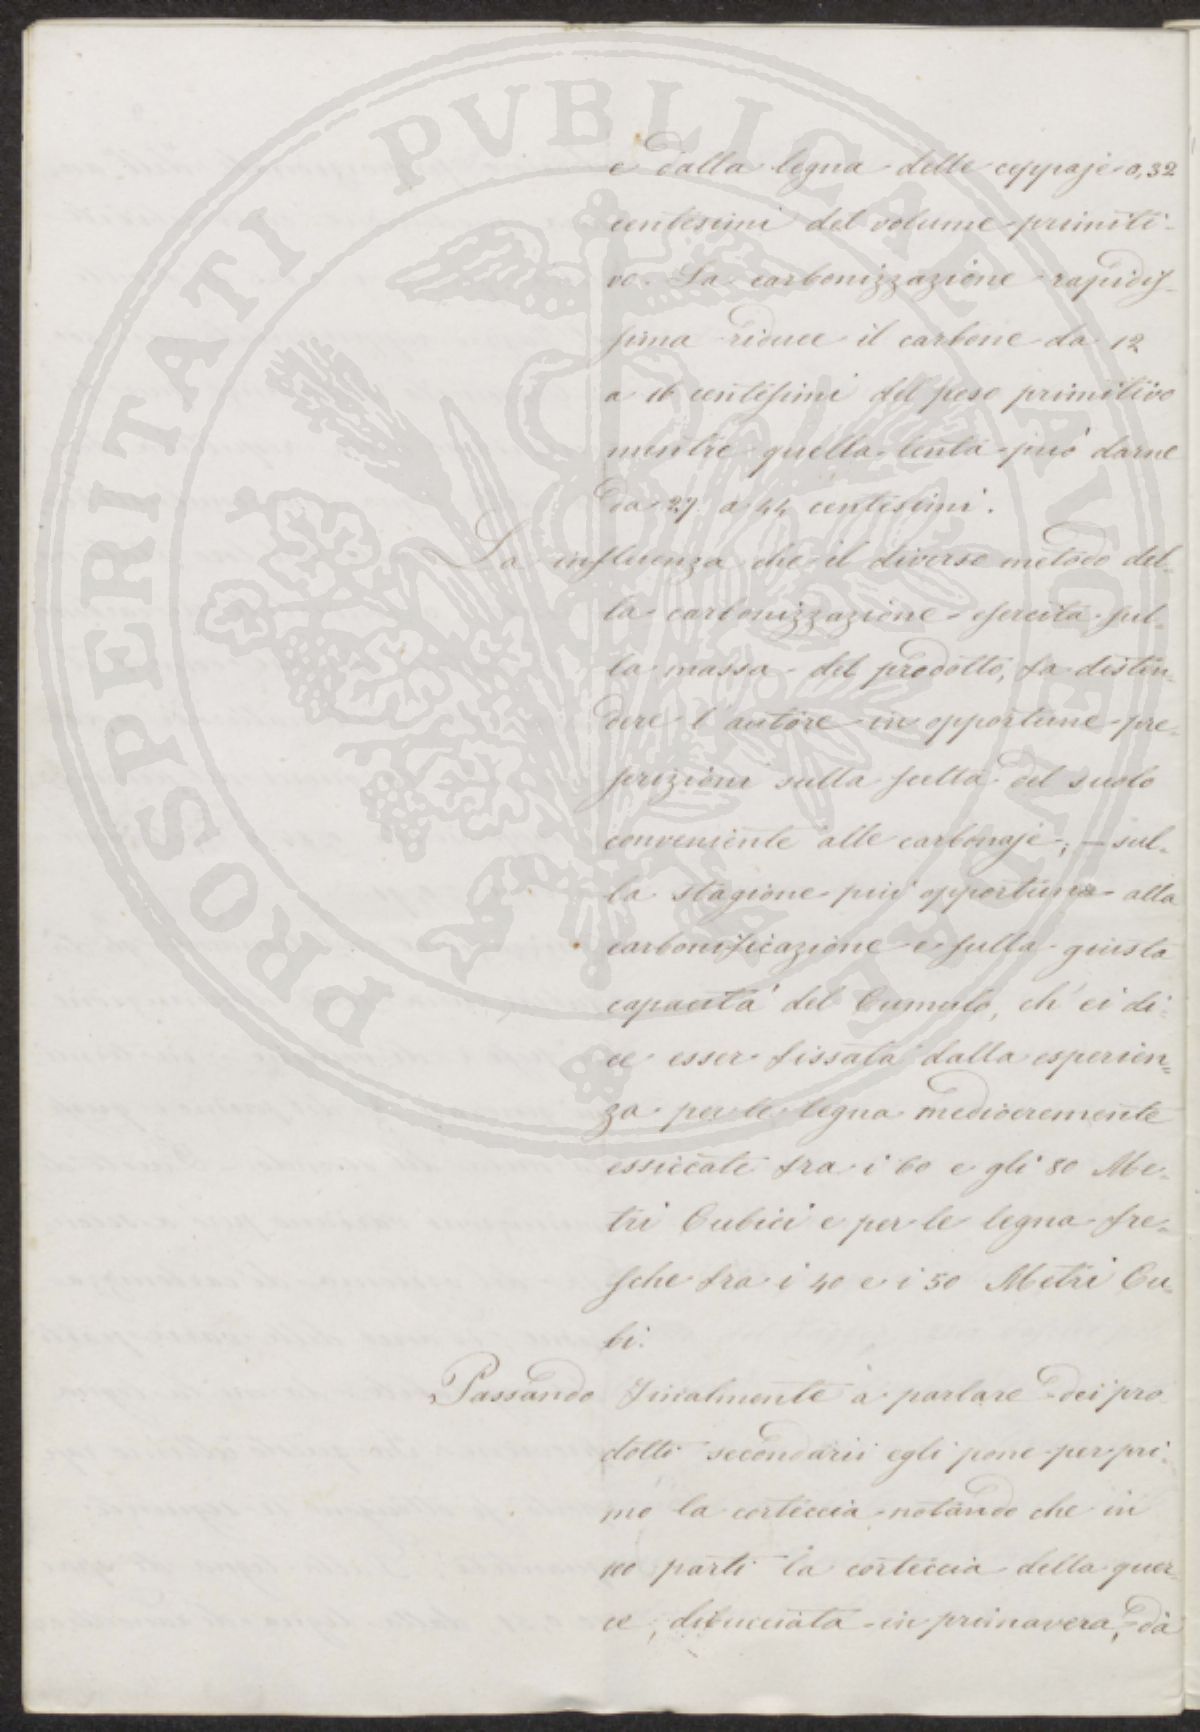 e dalla legna delle ceppaje 0,32
centesimi del volume primiti-
vo. La carbonizzazione rapidis-
sima riduce il carbone da 12
a 16 centesimi del peso primitivo
mentre quella lenta può darne
da 27 a 44 centesimi.
La influenza che il diverso metodo del-
la carbonizzazione esercita sul-
la massa del prodotto, fa disten-
dere l'autore in opportune pre-
scrizioni sulla scelta del suolo
conveniente alle carbonaje; – sul-
la stagione più opportuna alla
carbonificazione e sulla giusta
capacità del Cumulo, ch'ei di-
ce esser fissata dalla esperien-
za per le legna mediocremente
essiccate fra i 60 e gli 80 Me-
tri Cubici e per le legna fre-
sche fra i 40 e i 50 Metri Cu-
bi.
Passando finalmente a parlare dei pro
dotti secondarii egli pone per pri-
mo la corteccia notando che in
100 parti la corteccia della quer-
ce, dibucciata in primavera, dà
PROSPERITATI PVBLICAE AVGENDAE